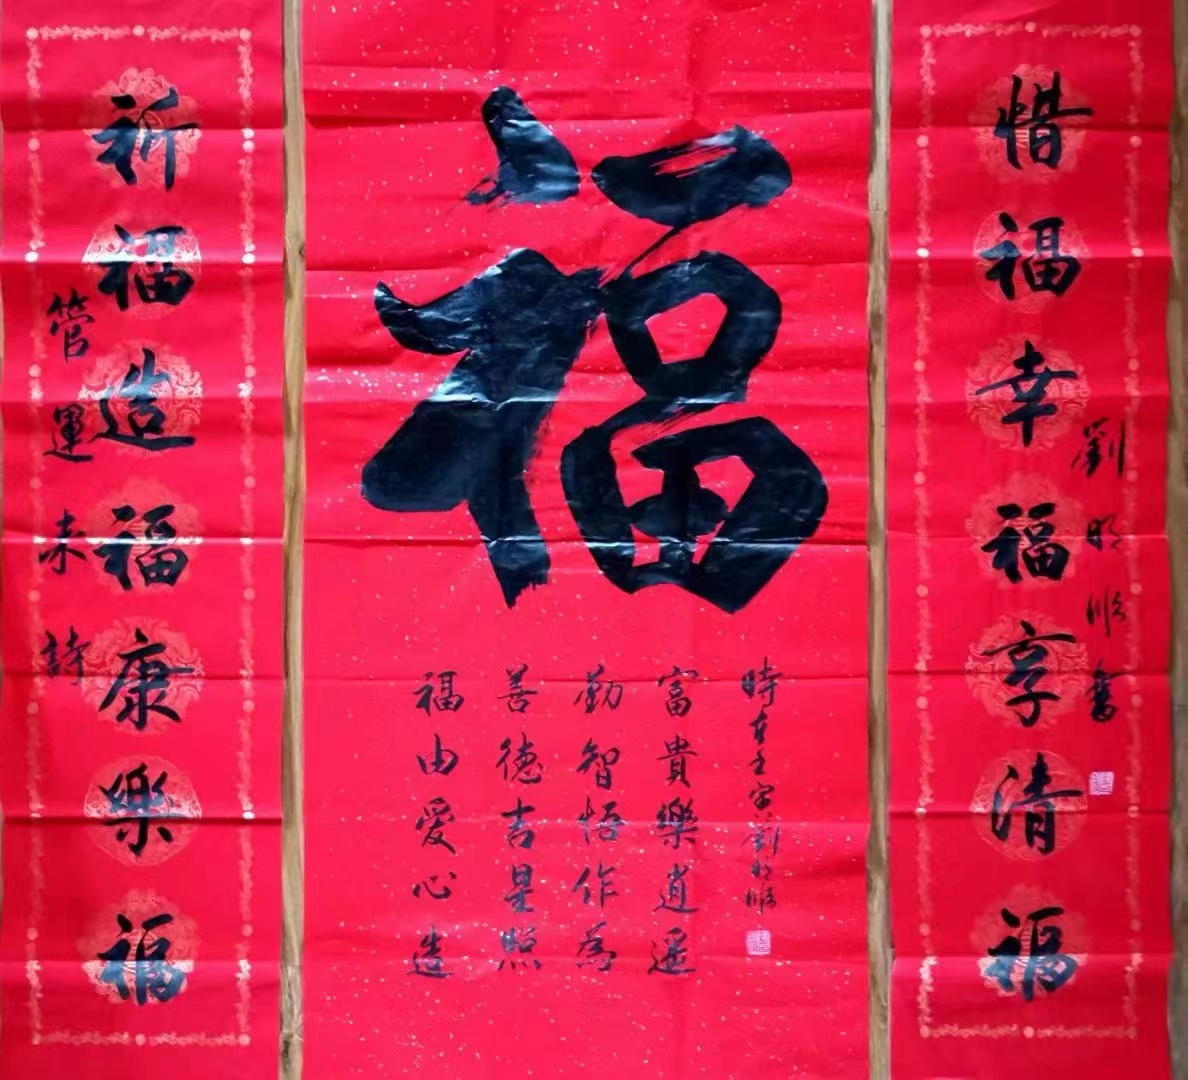 管運未詩
祈福造福康樂福
福
福由愛心造
善德吉星照
勤智悟作為
富貴樂逍遥
時在壬寅劉明順
惜福幸福享清福
劉明順書